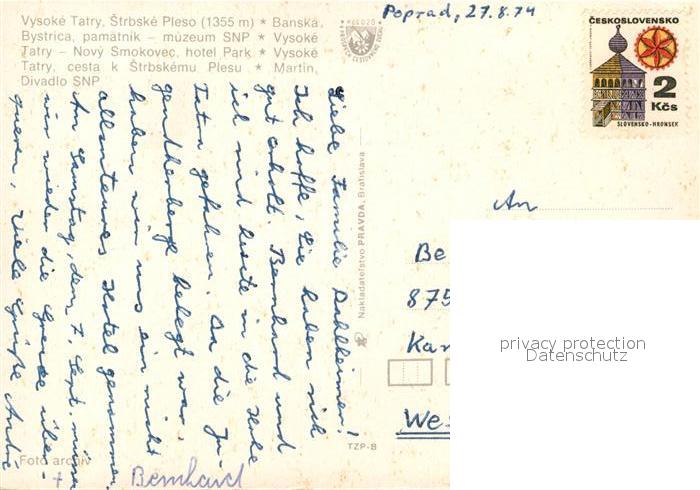 Vysoké Tatry, Štrbské Pleso (1355 m) * Banská
Bystrica, památník – múzeum SNP * Vysoké
Tatry – Nový Smokovec, hotel Park * Vysoké
Tatry, cesta k Štrbskému Plesu * Martin,
Divadlo SNP
Poprad, 27.8.74
ČESKOSLOVENSKO
2
Kčs
SLOVENSKO-HRONSEK
Liebe Familie
Ich hoffe, Sie haben sich
gut erholt. Bernhard und
ich sind heute in die Hohe
Tatra gefahren. Da die Ju-
gendherberge belegt war,
haben wir uns ein nicht
allzu teures Hotel genommen.
Am Samstag, dem 7. Sept. müssen
wir wieder die Grenze über-
queren. Viele Grüße André
+ Bernhard
Nakladateľstvo PRAVDA, Bratislava
An
Be
875
Kar
We
privacy protection
Datenschutz
TZP-B
Foto archív